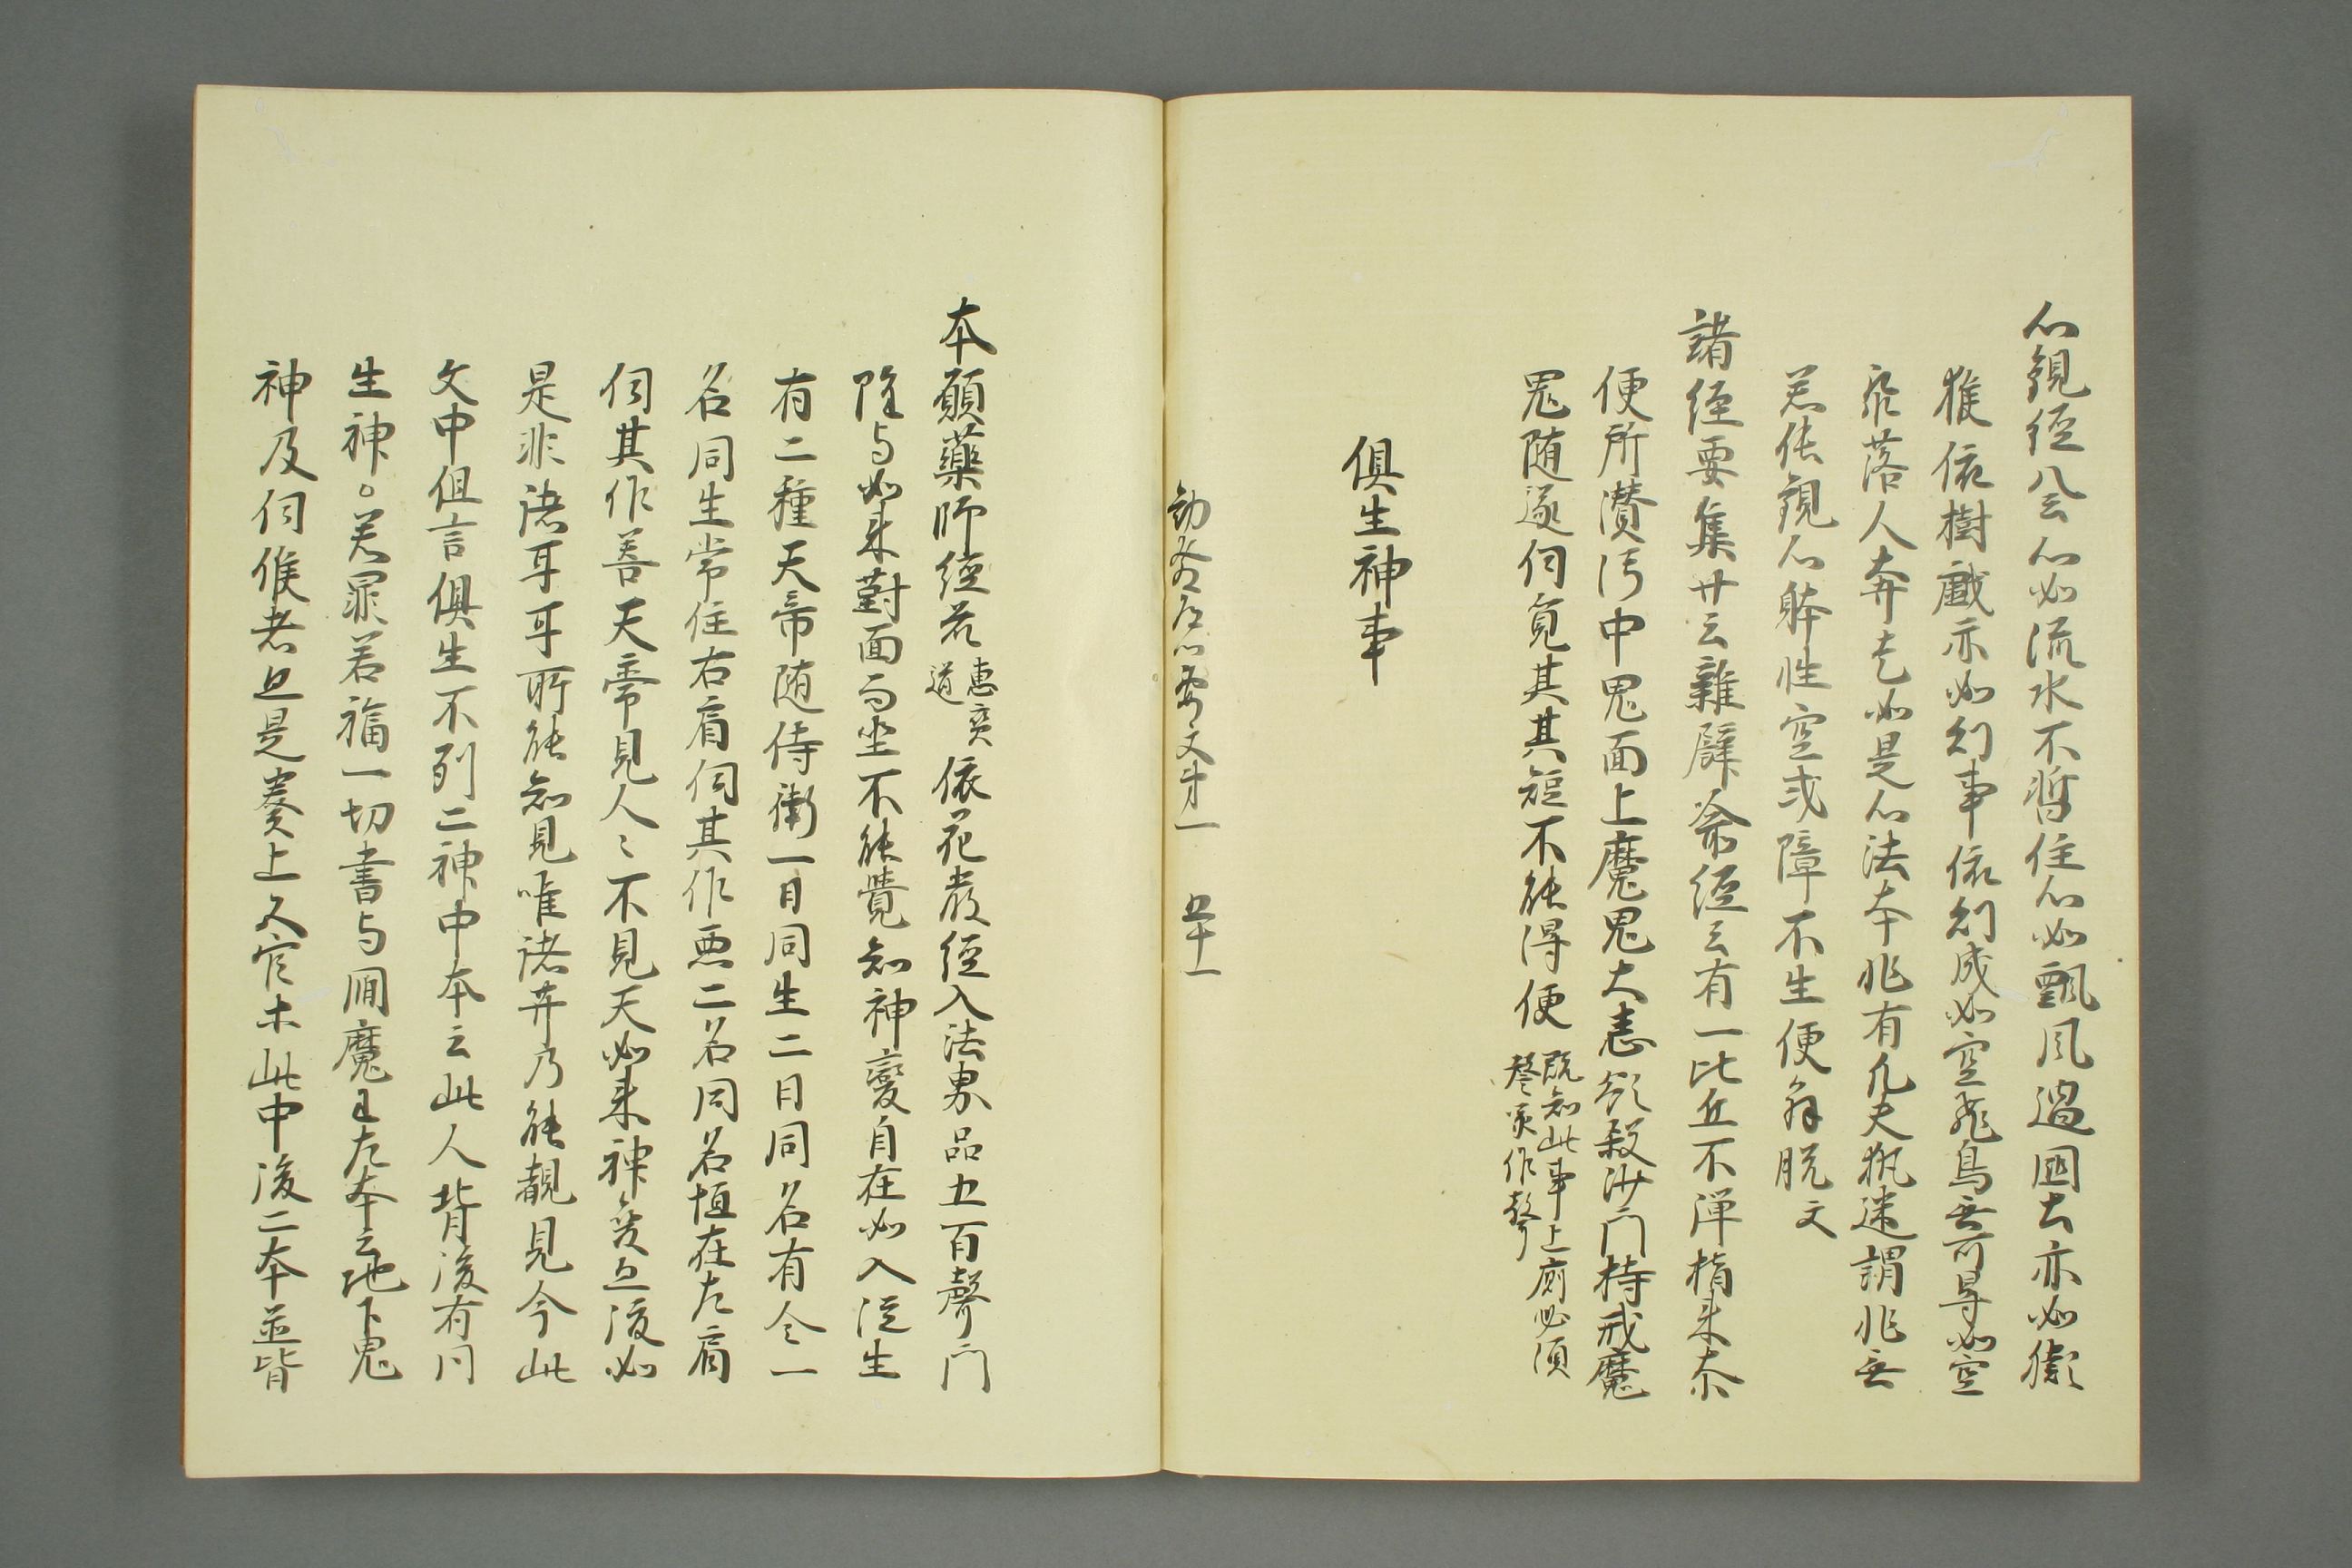 心観経八云心如流水不暫住心如飄風過国去亦如猿
猴依樹戯亦如幻事依幻成如空飛鳥無可㝵如空
聚落人奔走如是心法本非有凡夫執迷謂非無
若能観心躰性空或障不生便解脱文
諸経要集廿云雑譬喩経云有一比丘不弾指来
便所濽汚中鬼面上魔鬼大恚欲殺沙門持戒魔
鬼随逐伺覓其其短不能得便既知此事上廁必須謦咳作聲
俱生神事
要文才一 五十一
本願薬師経若惠賓道依花厳経入法界品五百聲門
隨与如来對面而坐不能覺知神變自在如入從生
有二種天帝随侍衛一曰同生二曰同名有今一
名同生常住右肩伺其作悪二名同名恒在左肩
伺其作善天常見人〻不見天如来神変且復如
是非諸耳耳所能知見唯諸菩薩乃能覩見今此
文中但言俱生不列二神中本云此人背後有同
生神。若罪若福一切書与閻魔王左本云地下鬼
神及伺候者且是奏上久官木此中後二本並皆